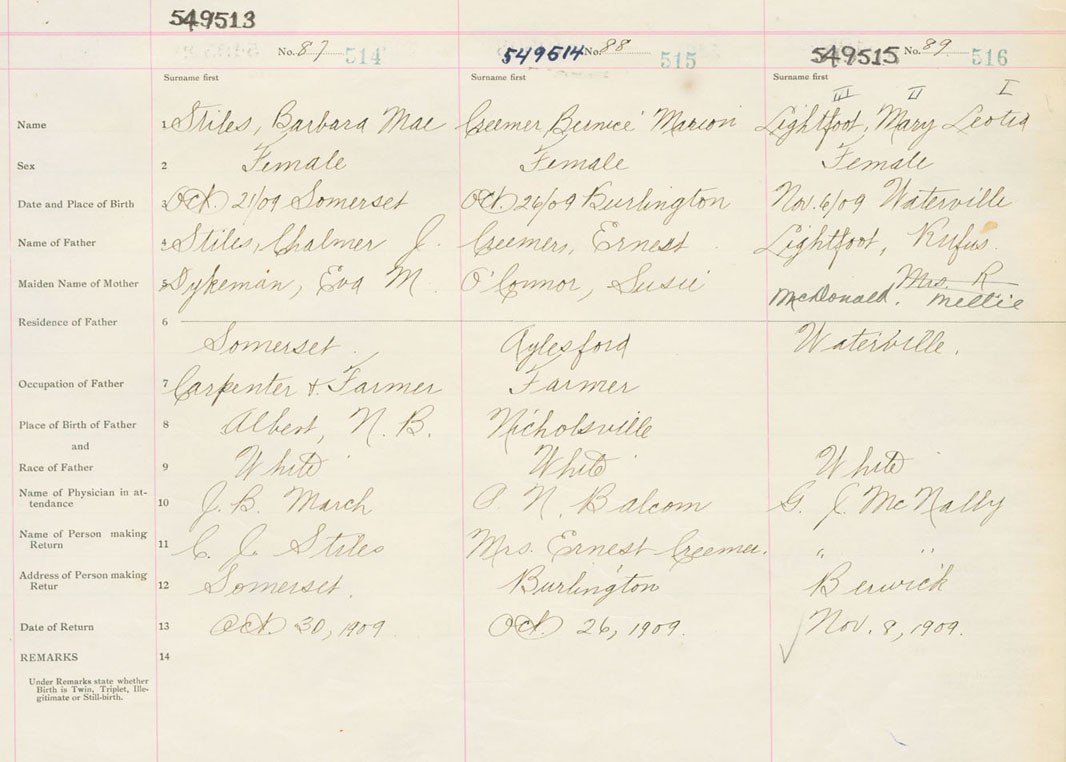 549513
No. 87 514 549514 No. 88 515 549515 No. 89 516
Surname first Surname first Surname first
III II I
Name 1 Stiles, Barbara Mae Creemer, Bernice Marion Lightfoot, Mary Leotia
Sex 2 Female Female Female
Date and Place of Birth 3 Oct. 21/09 Somerset Oct 26/09 Burlington Nov. 6/09 Waterville
Name of Father 4 Stiles, Chalmer J. Creemers, Ernest Lightfoot, Rufus.
Maiden Name of Mother 5 Dykeman, Eva M. O'Connor, Susie Mrs. R
McDonald. Mellie
Residence of Father 6
Somerset. Aylesford Waterville.
Occupation of Father 7 Carpenter & Farmer Farmer
Place of Birth of Father 8 Albert, N. B. Nicholsville
and
Race of Father 9 White White White
Name of Physician in at-
tendance 10 J. B. March P. N. Balcom G. J. McNally
Name of Person making
Return 11 C. J. Stiles Mrs. Ernest Creemer. " "
Address of Person making
Retur 12 Somerset. Burlington Berwick
Date of Return 13 Oct. 30, 1909. Oct. 26, 1909. Nov. 8, 1909.
REMARKS 14
Under Remarks state whether
Birth is Twin, Triplet, Ille-
gitimate or Still-birth.